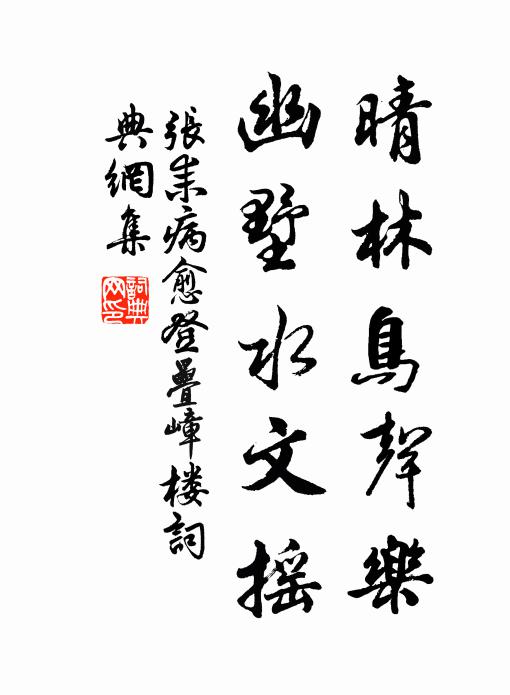 晴林鳥聲樂
幽墅水文搖
張耒病愈登疊嶂楼詞
典網集
詞典
网印